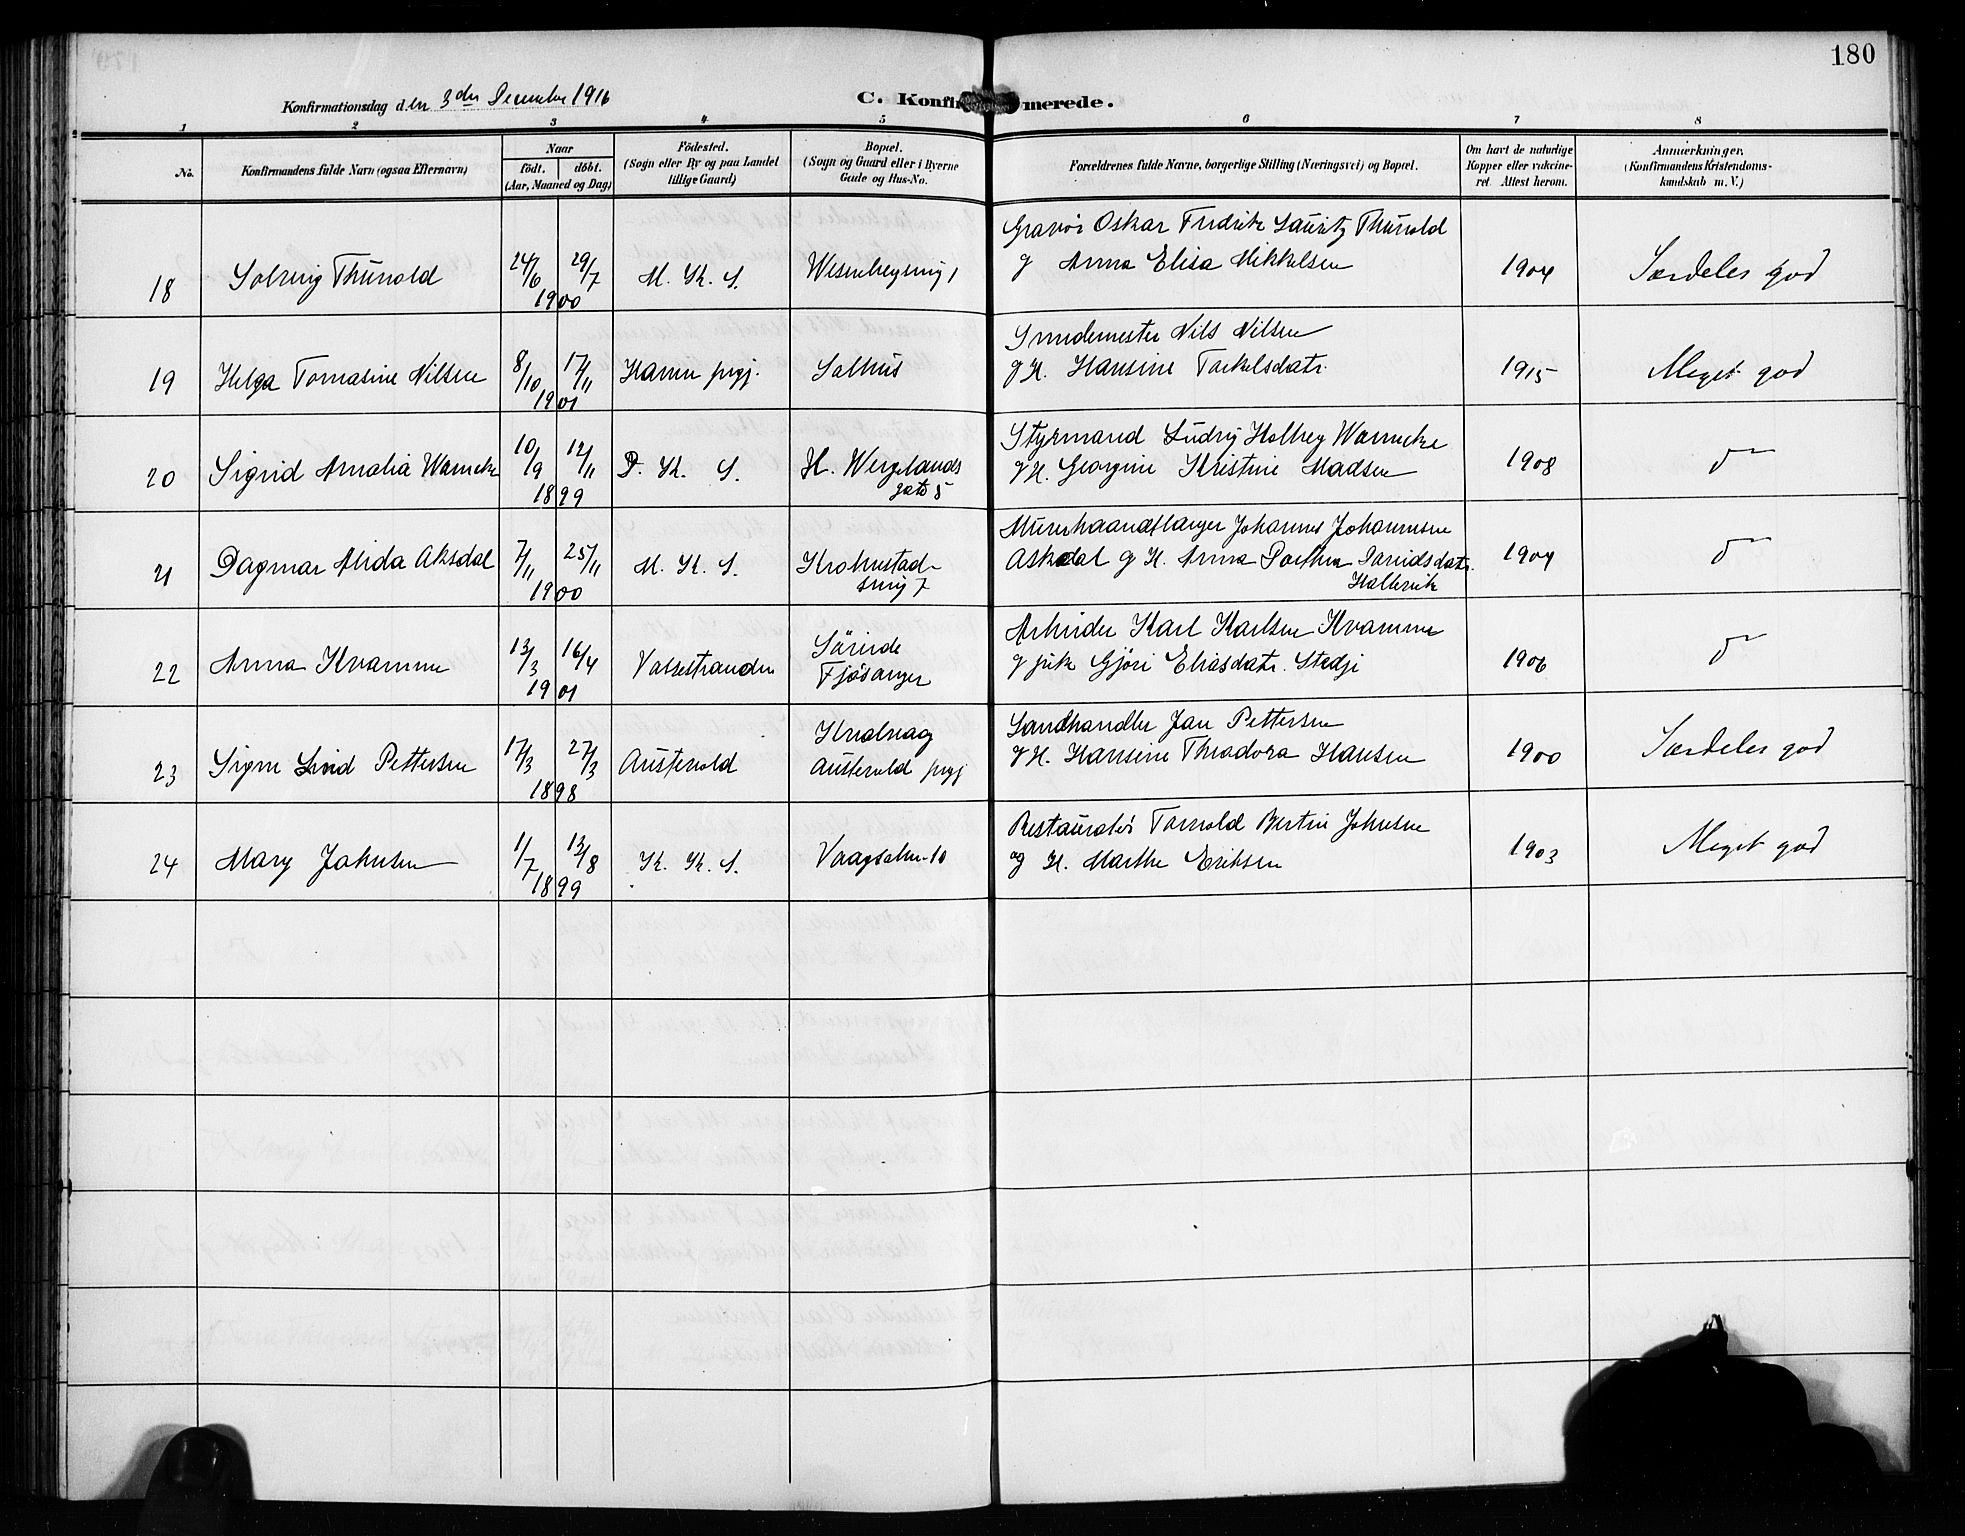 180
Konfirmationsdag den 3die December 1916
C. Konfirmerede.
1 2 3 4 5 6 7 8
No.
Konfirmandens fulde Navn (ogsaa Efternavn)
Naar
født. døbt.
(Aar, Maaned og Dag)
Fødested.
(Sogn eller By og paa Landet
tillige Gaard)
Bopæl.
(Sogn og Gaard eller i Byerne
Gade og Hus-No.
Forældrenes fulde Navne, borgerlige Stilling (Næringsvei) og Bopæl.
Om havt de naturlige
Kopper eller vaccine-
ret. Attest herom.
Anmærkninger,
(Konfirmandens Kristendoms-
kundskab m. V.)
18 Solveig Thunold 24/6 29/7 1900 M. K. S.
Gravør Oskar Fredrik Lauritz Thunold
og Anna Elisa Mikkelsen
1904 Særdeles god
19 Helga Tomasine Nilsen 8/10 17/11 1901 Hamre prgj. Salhus
Smedemester Nils Nilsen
og H. Hansine Torkelsdatr.
1915 Meget god
20 Sigrid Amalia Warncke 10/9 12/11 1899 D. K. S. H. Wergelands
gate 5
Styrmand Ludvig Holberg Warncke
og H. Georgine Kristine Madsen
1908 do
21 Dagmar Alida Aksdal 7/11 25/11 1900 M. K. S. Krohnstad-
smug 7
Murerhaandlanger Johannes Johannesen
Aksdal og H. Anna Davidsdatr.
Hallevik
1904 do
22 Anna Kvamme 13/3 16/4 1901 Valestranden
Fjøsanger
Arbeider Karl Karlsen Kvamme
og Gjøri Eliasdatr. Stedje
1906 do
23 Signe Lind Pettersen 17/3 27/3 1898 Austevold
Austevold prgj
Landhandler Jan Pettersen
og H. Hansine Theadora Hansen
1900 Særdeles god
24 Mary Johnsen 1/7 13/8 1899 K. K. S. Vaagsalm. 10
Restauratør Tornold Bertin Johnsen
og H. Marthe Eriksen
1903 Meget god